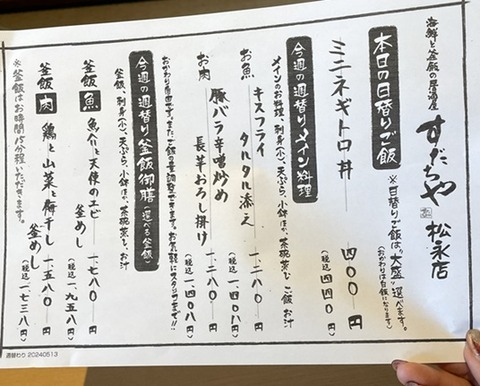 海鮮と釜飯の居酒屋
すだちや 松永店
本日の日替りご飯
※日替りご飯は"大盛"選べます。
(おかわりは白飯になります)
ミニネギトロ丼 四〇〇円
(税込四四〇円)
今週の週替りメイン料理
メインのお料理、刺身(小)、天ぷら、小鉢、ほか、茶碗蒸し、ご飯、お汁
お魚 キスフライ
タルタル添え 一、二八〇円
(税込一、四〇八円)
お肉 豚バラ辛噌炒め
長芋おろし掛け 一、二八〇円
(税込一、四〇八円)
お気軽にスタッフまで!!
今週の週替り釜飯御膳(選べる釜飯)
釜飯、刺身(小)、天ぷら、小鉢、ほか、茶碗蒸し、お汁
釜飯 魚 魚介と天使のエビ
釜めし 一、七八〇円
(税込一、九五八円)
釜飯 肉 鶏と山菜と梅干し
釜めし 一、五八〇円
(税込一、七三八円)
※釜飯はお時間15分程いただきます。
週替わり 20240513